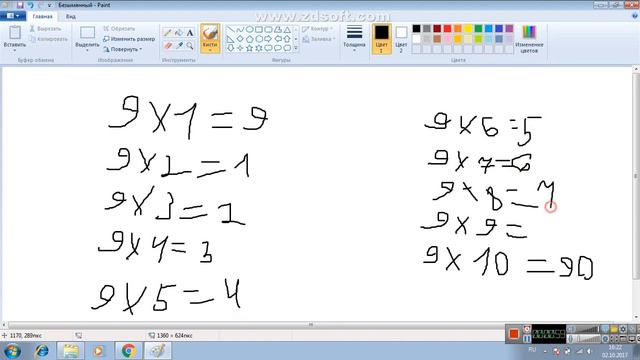 Безымянный - Paint
www.zdsoft.com
Главная Вид
Вставить
Вырезать
Копировать
Выделить
Обрезать
Изменить размер
Повернуть
Кисти
Контур
Заливка
Толщина
Цвет 1
Цвет 2
Изменение цветов
Буфер обмена
Изображение
Инструменты
Фигуры
Цвета
9 x 1 = 9
9 x 2 = 1
9 x 3 = 2
9 x 4 = 3
9 x 5 = 4
9 x 6 = 5
9 x 7 = 6
9 x 8 = 7
9 x 9 =
9 x 10 = 90
1170, 289пкс
1360 × 624пкс
RU
16:22
02.10.2017